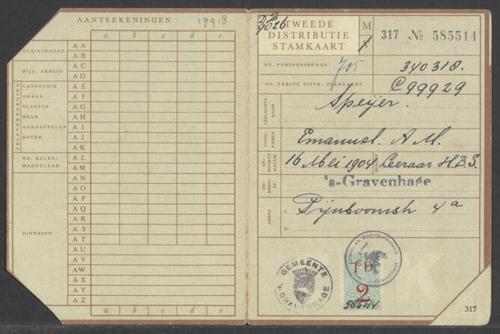 AANTEEKENINGEN
17918
a b c d e
GEZINSHOOFD AA
AB
BIJZ. ARBEID AC
ZELFVERZORGING
AD
CATEGORIE AE
GRAAN AF
VLEESCH AG
MELK AH
AARDAPPELEN AI
BOTER AJ
AK
NO. KOLENHANDELAAR AL
AM
AN
AO
AP
AQ
AR
DIVERSEN AS
AT
AU
AV
AW
AX
AY
AZ
a b c d e
TWEEDE
DISTRIBUTIE
STAMKAART
M
317 No 585514
NO. PERSOONSBEWIJS 705 340318.
NO. EERSTE DISTR. STAMKAART C99929
GESLACHTSNAAM Speijer.
VOORNAMEN Emanuel. A.M.
16 Mei 1904 Leeraar H.B.S.
's-Gravenhage
ADRES Pijnboomstr 4a
GEMEENTE
'S-GRAVENHAGE
TD
2
585514
317